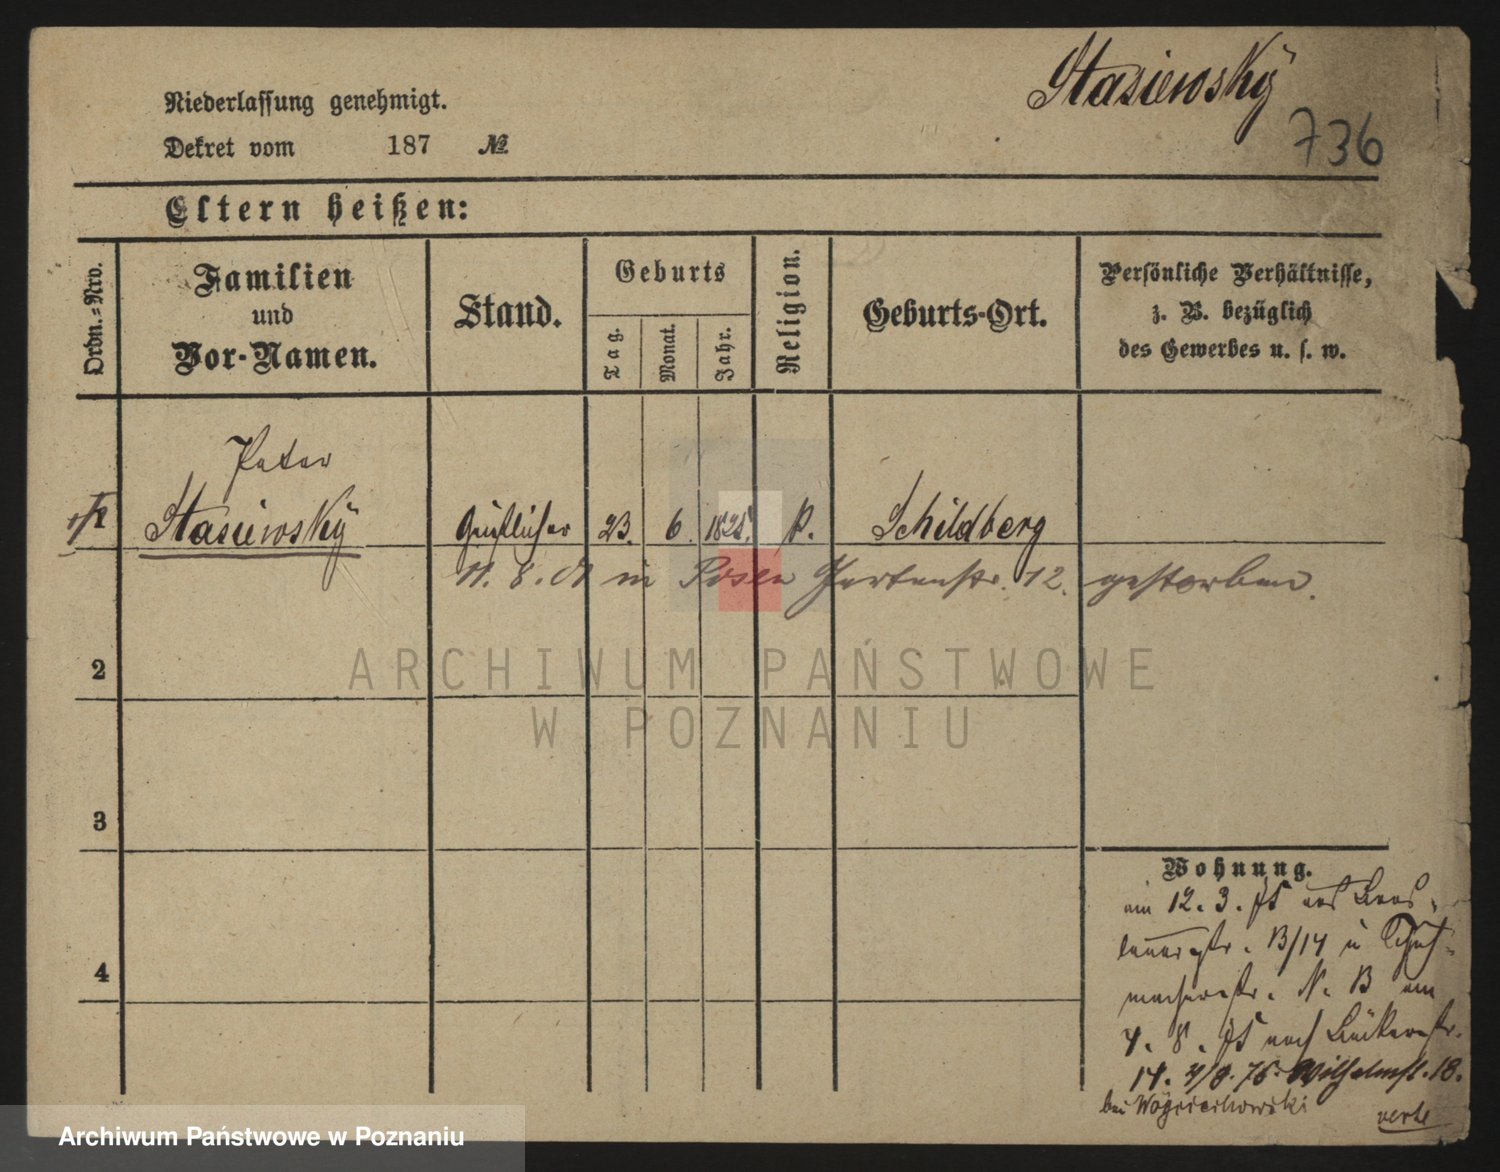 Stasiewsky
736
Niederlassung genehmigt.
Dekret vom 187 №
Eltern heißen:
Ordn.=Nro.
Familien
und
Vor-Namen.
Stand.
Geburts
Tag.
Monat.
Jahr.
Religion.
Geburts-Ort.
Persönliche Verhältnisse,
z. B. bezüglich
des Gewerbes u. s. w.
Peter
1 Stasiewsky Geistlicher 23. 6. 1825. k. Schildberg
11. 8. 01 in Posen Gartenstr. 12. gestorben.
2
3
4
Wohnung.
12. 3. 75
B/14
macherstr. N. B am
7. 8. 75 nach Bäckerstr.
14. 4/8. 76. Wilhelmst. 18.
bei Woyciechowski
verte
ARCHIWUM PAŃSTWOWE
W POZNANIU
Archiwum Państwowe w Poznaniu